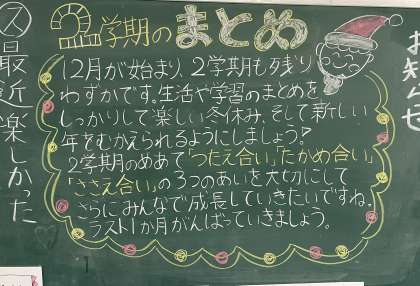 2学期のまとめ
12月が始まり、2学期も残り
わずかです。生活や学習のまとめを
しっかりして楽しい冬休み、そして新しい
年をむかえられるようにしましょう！
2学期のめあて「つたえ合い」「たかめ合い」
「ささえ合い」の3つのあいを大切にして
さらにみんなで成長していきたいですね。
ラスト1か月がんばっていきましょう。
お知らせ
ス最近楽しかった